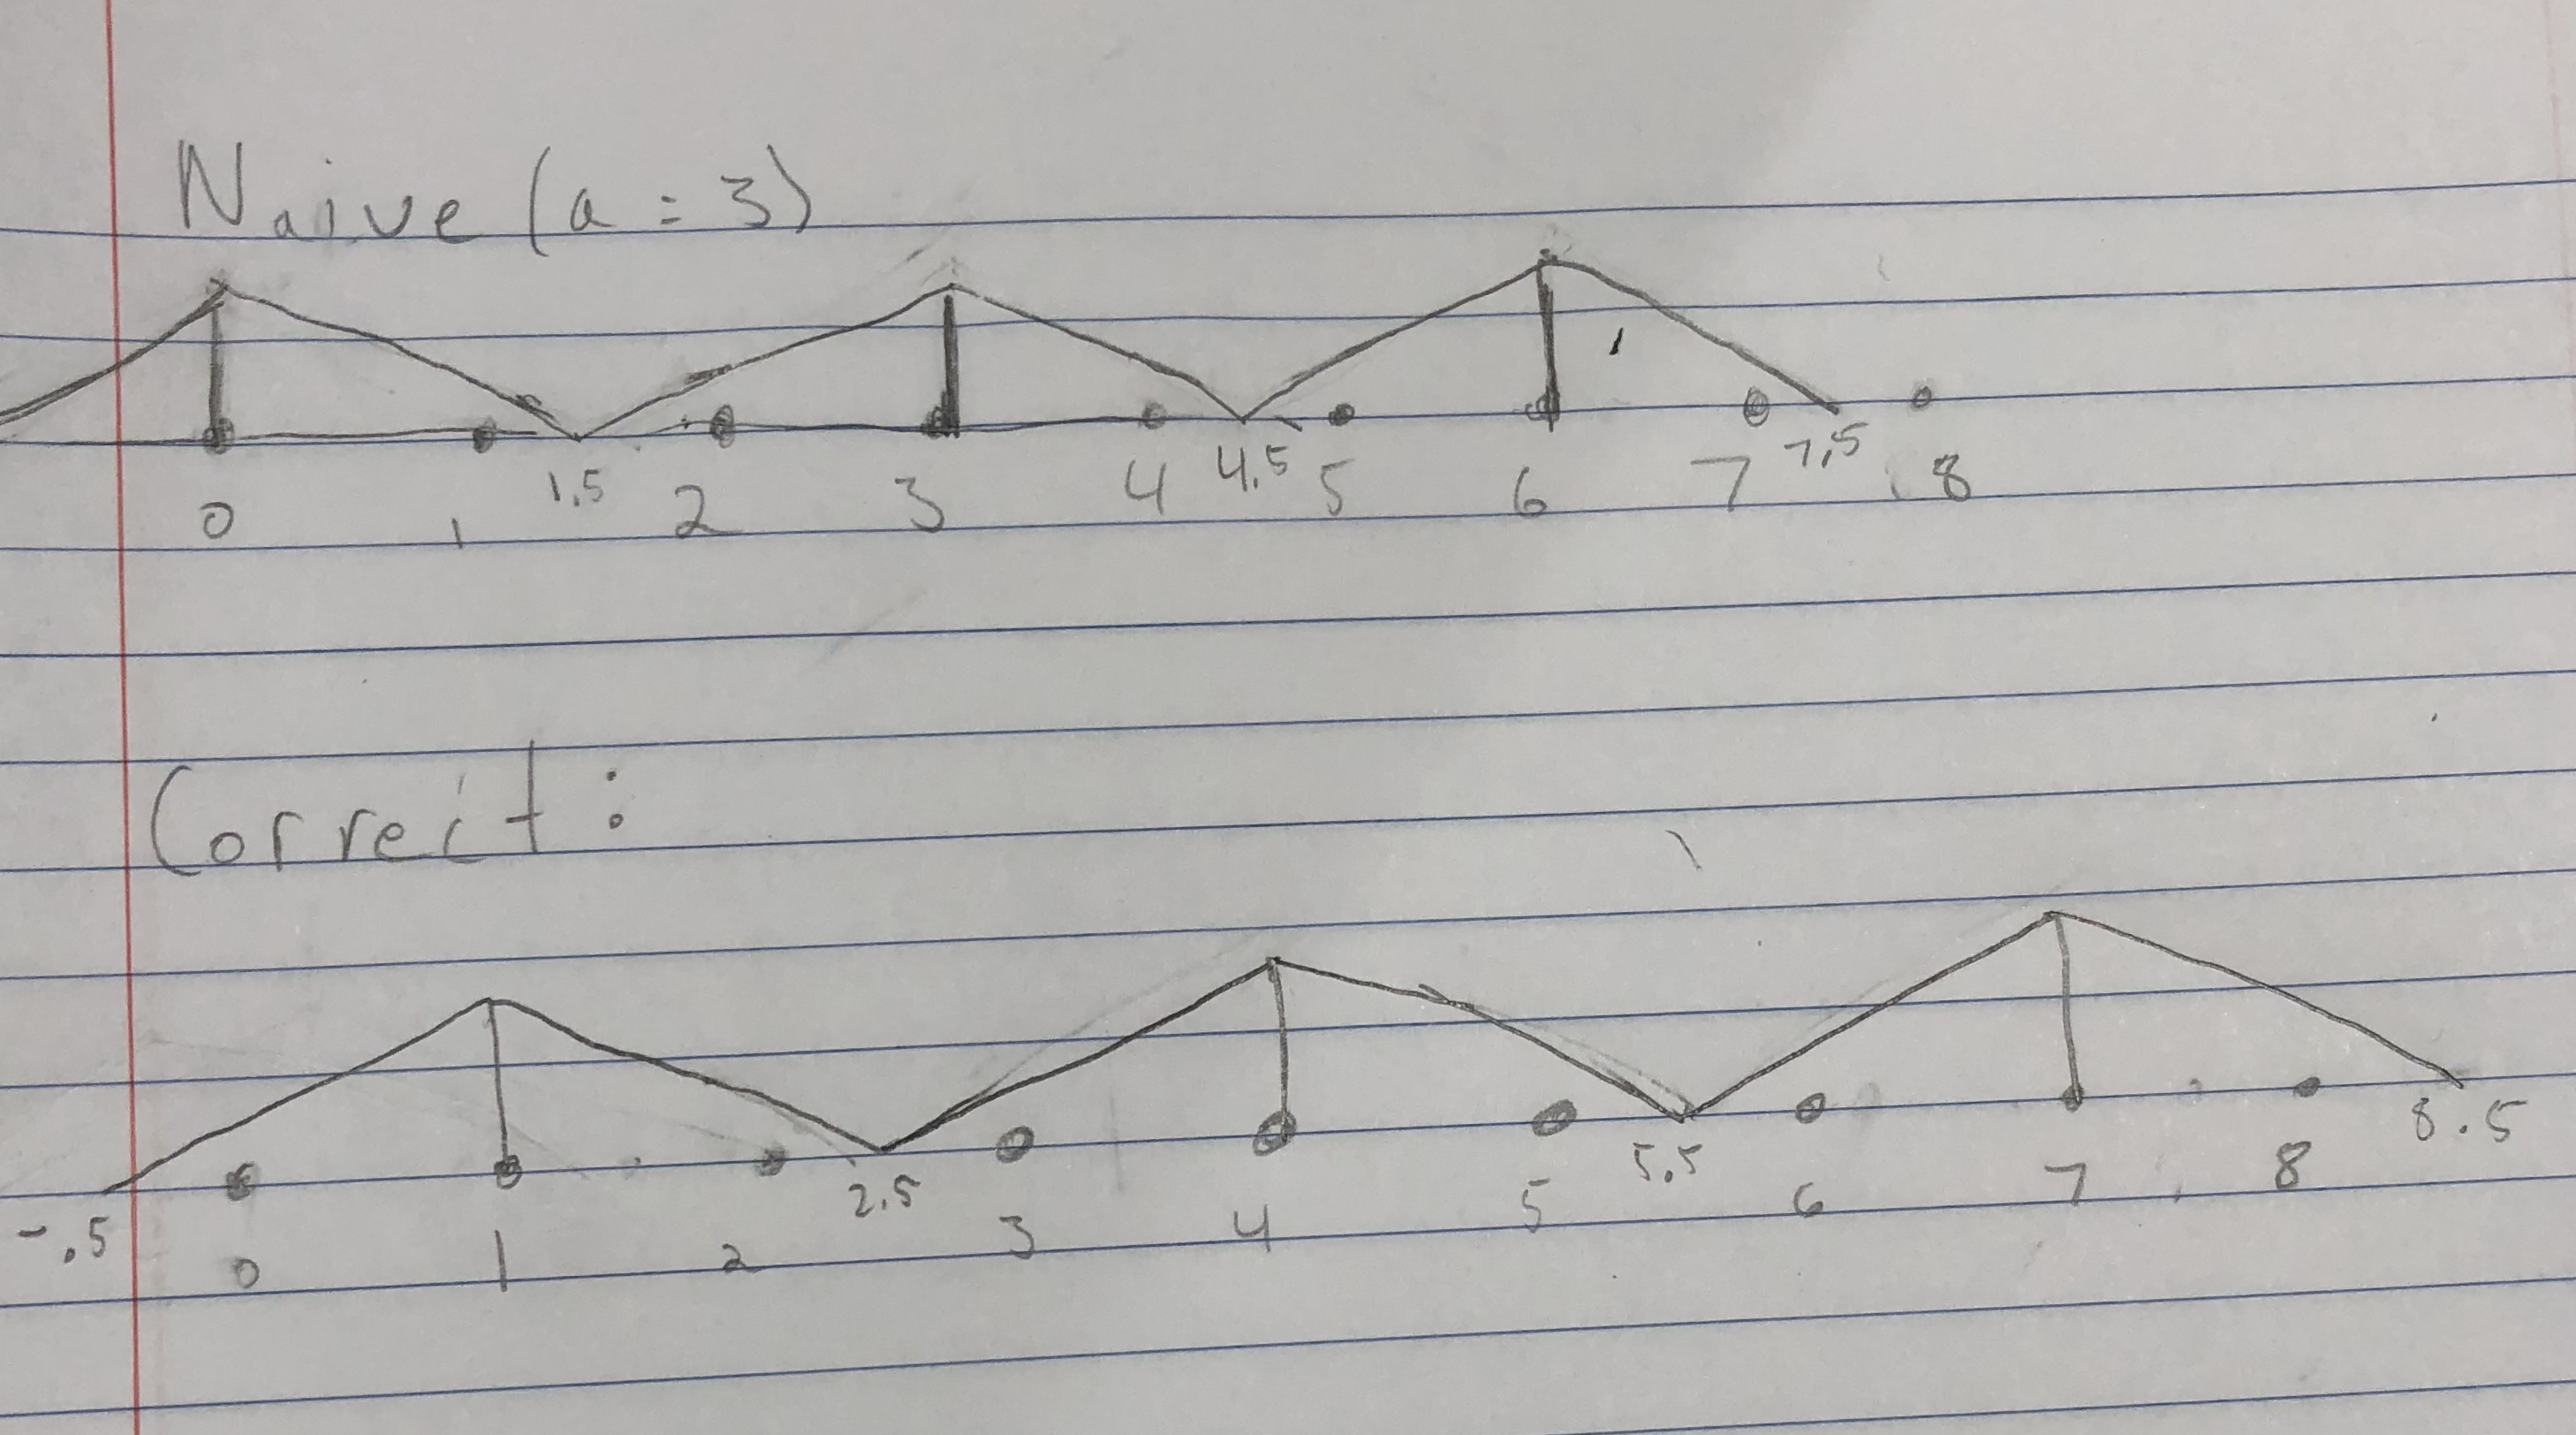 Naive (a = 3)
0 1 1.5 2 3 4 4.5 5 6 7 7.5 8
Correct:
-.5 0 1 2 2.5 3 4 5 5.5 6 7 8 8.5